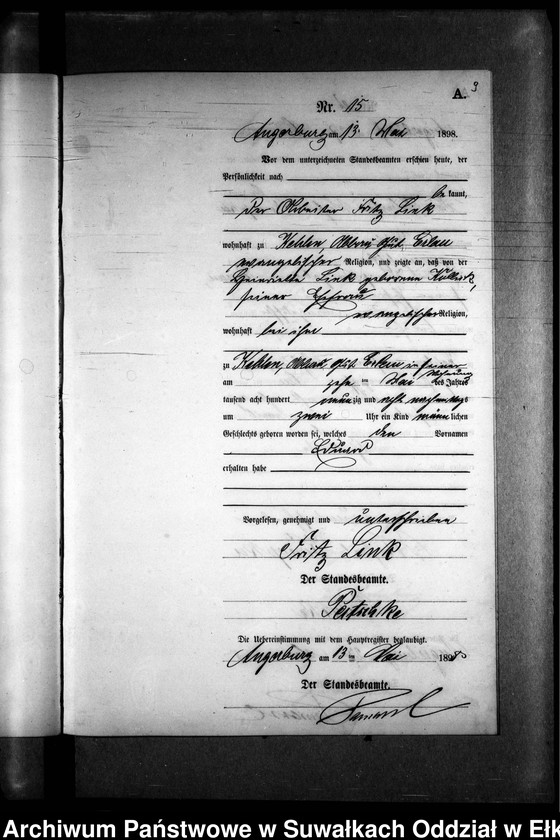 A. 3
Nr. 15
Angerburg am 13 Mai 1898.
Vor dem unterzeichneten Standesbeamten erschien heute, der
Persönlichkeit nach
be kannt,
der Arbeiter Fritz Link
wohnhaft zu Kehlen,
evangelischer Religion, und zeigte an, daß von der
Link geborene
seiner Ehefrau
evangelischer Religion,
wohnhaft bei ihm
zu Kehlen, in seiner
Wohnung
am zehn ten Mai des Jahres
tausend acht hundert neunzig und acht nachmittags
um zwei Uhr ein Kind männ lichen
Geschlechts geboren worden sei, welches den Vornamen
Eduard
erhalten habe
Vorgelesen, genehmigt und unterschrieben
Fritz Link
Der Standesbeamte.
Die Uebereinstimmung mit dem Hauptregister beglaubigt.
Angerburg am 13 ten Mai 1898
Der Standesbeamte.
Archiwum Państwowe w Suwałkach Oddział w Ełk